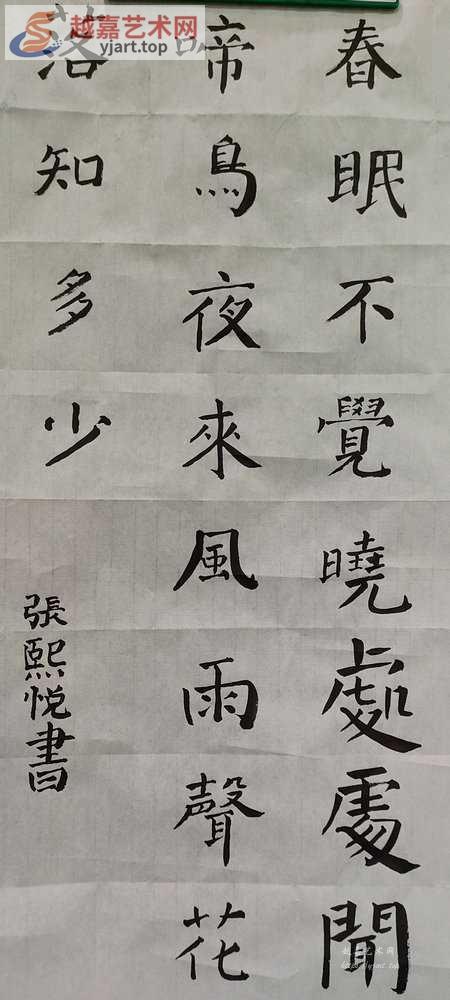 春眠不覺曉處處聞
啼鳥夜來風雨聲花
落知多少
張熙悦書
越嘉艺术网
yjart.top
越嘉艺术网